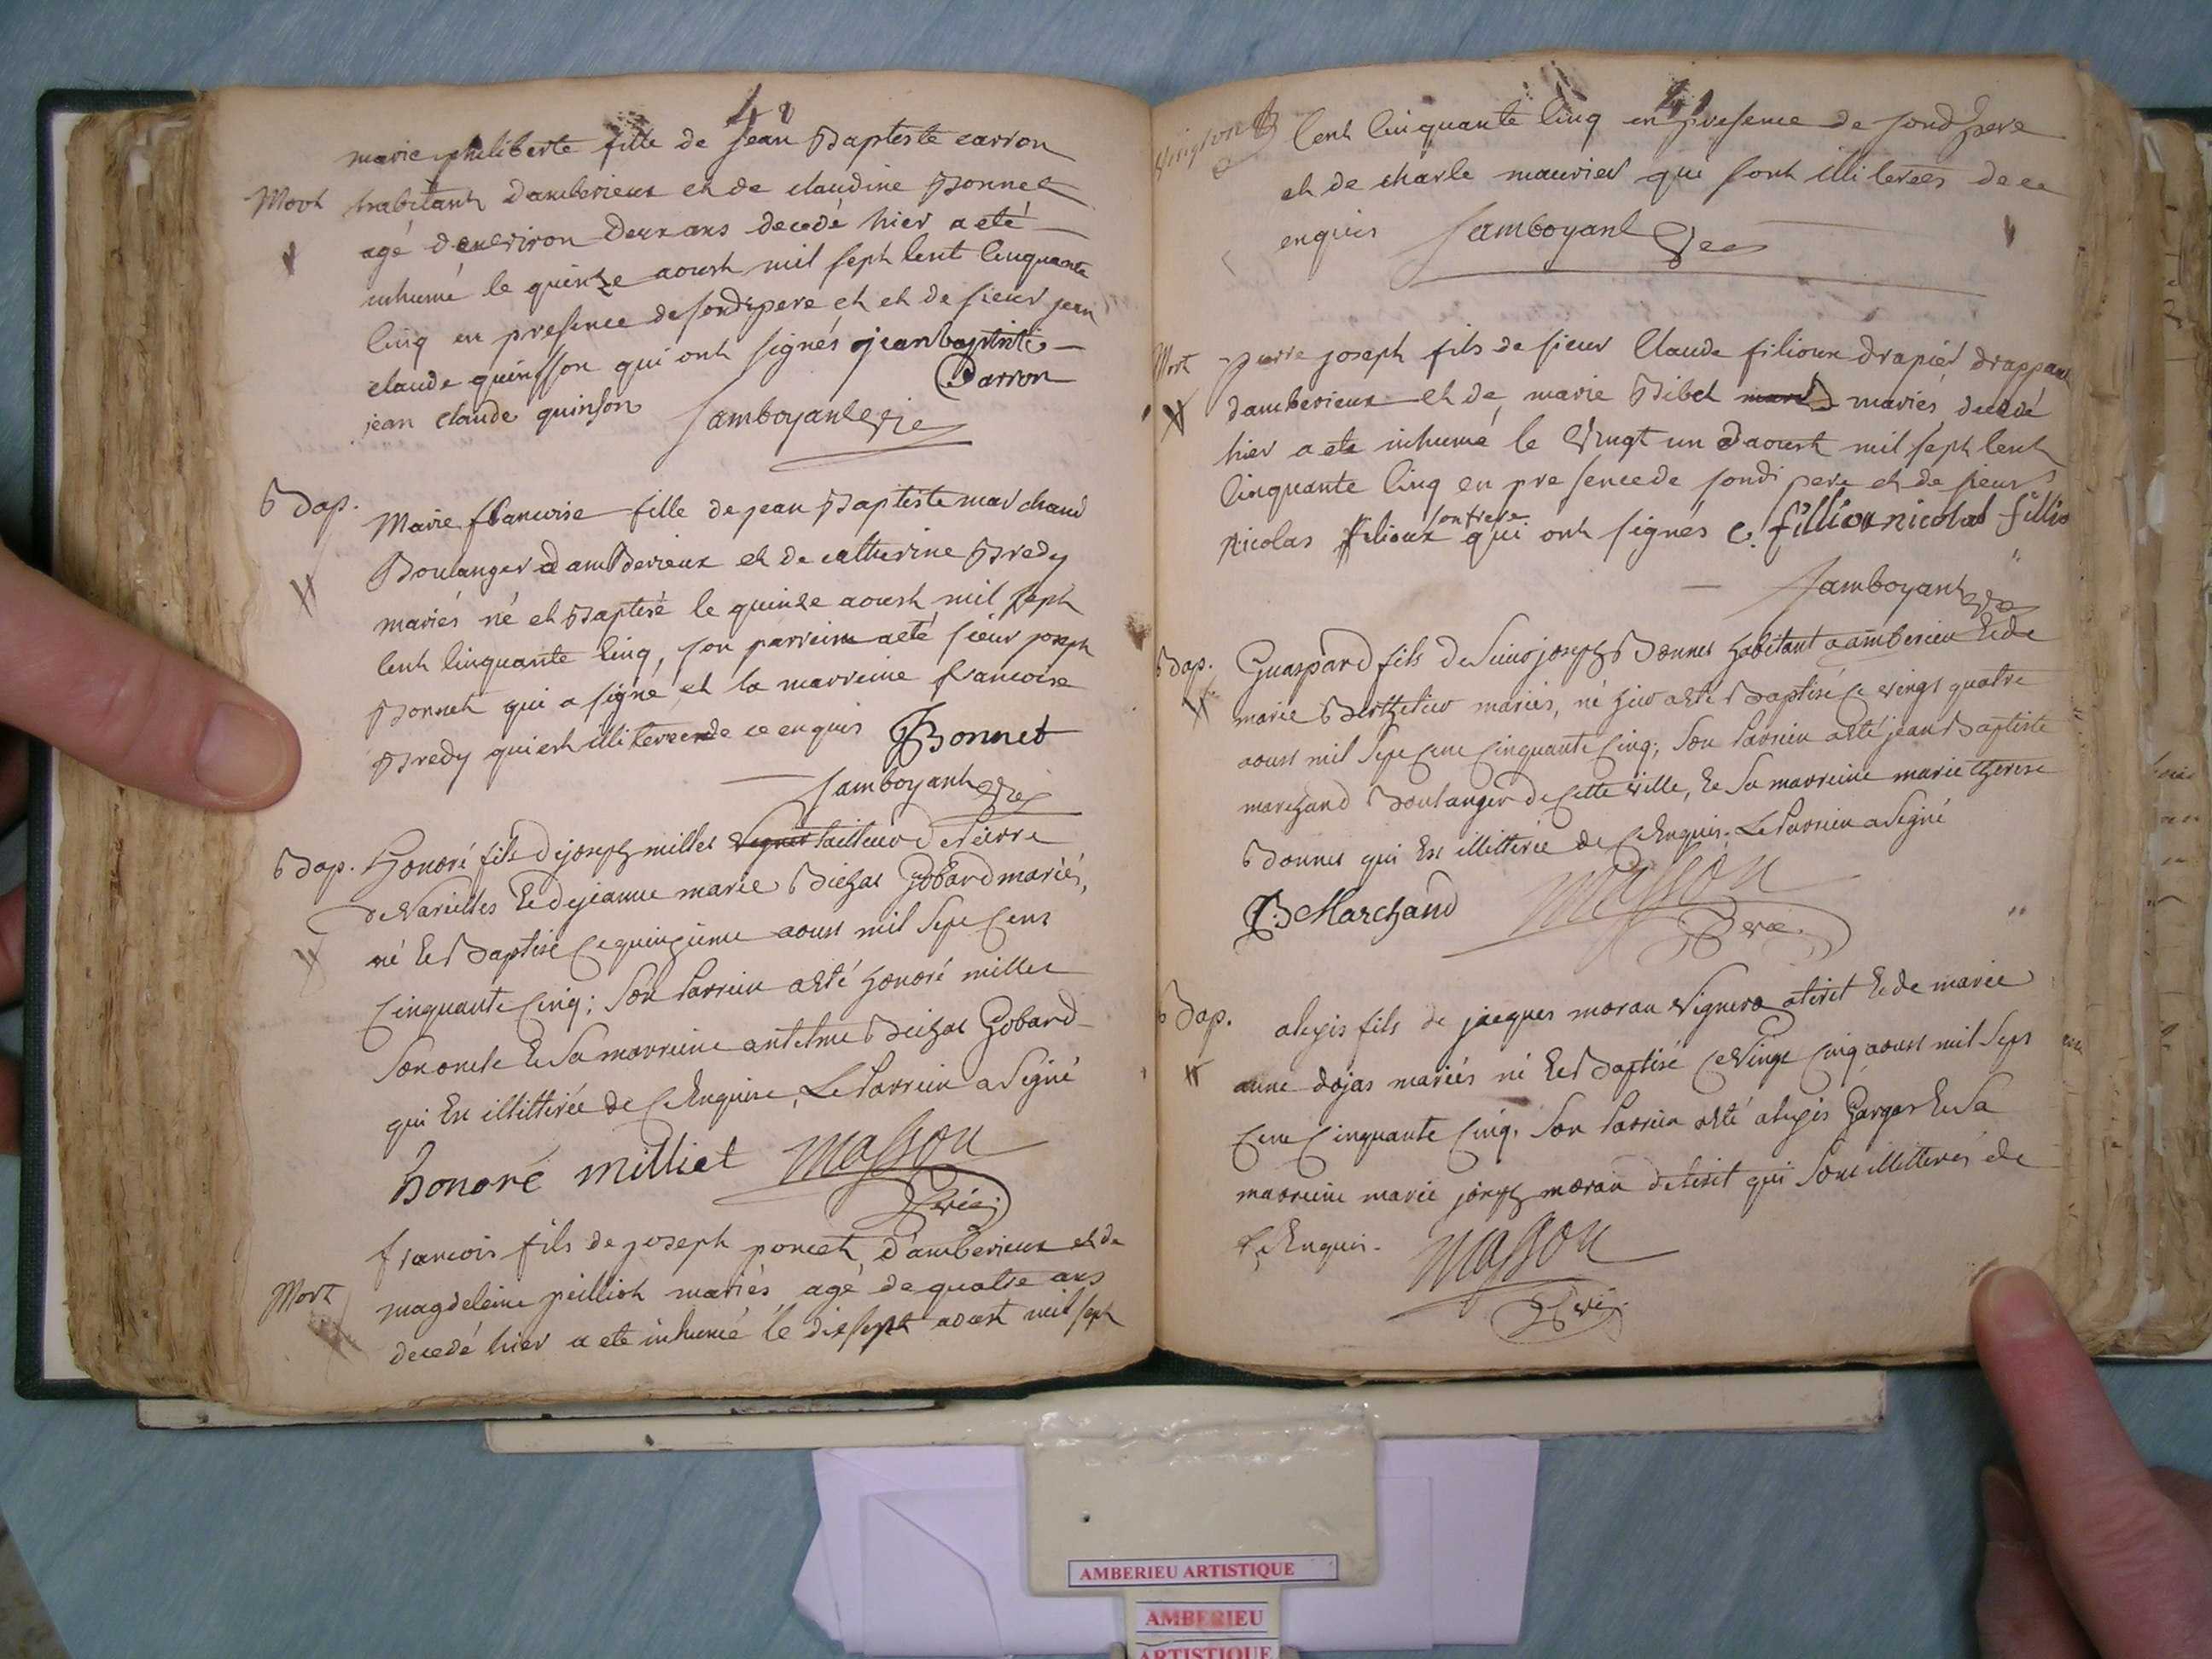 40
marie philiberte fille de jean Baptiste carron
Mort habitant d'amberieux et de claudine Bonnet
agé d'environ deux ans decedé hier a eté
inhumé le quinze aoust mil sept cent cinquante
cinq en presence de sond pere et et de sieur jean
claude quinsson qui ont signés jean baptiste
Carron
jean claude quinson jamboyant vic
Bap. Marie francoise fille de jean Baptiste marchand
Boulanger d'amberieux et de catherine Bredy
mariés né et Baptisé le quinze aoust mil sept
cent cinquante cinq, son parrein a eté sieur joseph
Bonnet qui a signé et la marreine francoise
Bredy qui est illiteree de ce enquis JBonnet
jamboyant vic
Bap. Honoré fils de joseph millet vigner tailleur de Pierre
de Vareilles et de jeanne marie Gobard mariés,
né et Baptisé ce quinzieme aoust mil sept cent
Cinquante Cinq; son Parrein a été honoré millet
son oncle et sa marreine antelme Gobard
qui est illittérée de ce Enquise, Le Parrein a signé
honoré milliet Masson
vic.
francois fils de joseph poncet d'amberieux et de
Mort magdeleine peillot mariés agé de quatre ans
decedé hier a eté inhumé le dixsept aoust mil sept
cent cinquante cinq en presence de sond pere
et de charle maurier qui sont illiterées de ce
enquis jamboyant vic
Mort pierre joseph fils de sieur Claude filioux drapier drappant
d'amberieux et de marie Bibet mariés decedé
hier a eté inhumé le vingt un d'aoust mil sept cent
cinquante cinq en presence de sondi pere et de sieur
son frere
nicolas filioux qui ont signés c. filliou nicolas fillio
jamboyant vic
Bap. Guaspard fils de sieur joseph Bonnet habitant a amberieu et de
marie Berthelier mariés, né hier a été Baptisé ce vingt quatre
aoust mil sept cent cinquante cinq; son Parrein a été jean Baptiste
marchand Boulanger de cette ville, et sa marreine marie therese
Bonnet qui est illittérée de ce Enquis. Le Parrein a signé
JB Marchand Masson
vic.
Bap. alexis fils de jacques moran vigneron a tiret et de marie
anne dojas mariés né et Baptisé ce vingt cinq aoust mil sept
cent cinquante cinq. son Parrein a été alexis Gargas et sa
marreine marie joseph moran de tiret qui sont illitterés de
ce Enquis. Masson
vic.
AMBERIEU ARTISTIQUE
AMBERIEU
ARTISTIQUE